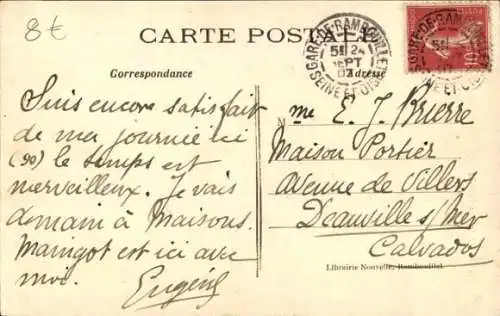 8€
CARTE POSTALE
GARE-DE-RAMBOUILLET
5E 24
SEPT
SEINE-ET-OISE
10
Correspondance
Adresse
Suis encore satisfait
de ma journée ici
(90) le temps est
merveilleux. Je vais
demain à Maisons.
Mamgot est ici avec
moi.
Eugène
Me E. J. Brierre
Maison Portier
Avenue de Villers
Deauville s/mer
Calvados
Librairie Nouvelle, Rambouillet